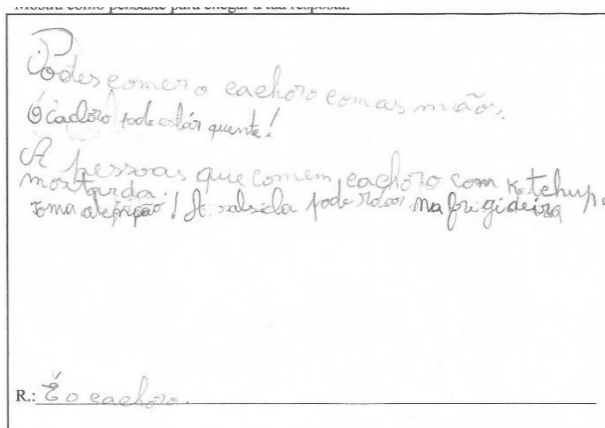 Mostra como pensaste para chegar à tua resposta.
Podes comer o cachoro com as mãos.
O cachoro pode estár quente!
A pessoas que comem cachoro com ketchup e
mostarda.
Toma atenpção! A salsicla pode rolar na frigideira
R.: É o cachoro.